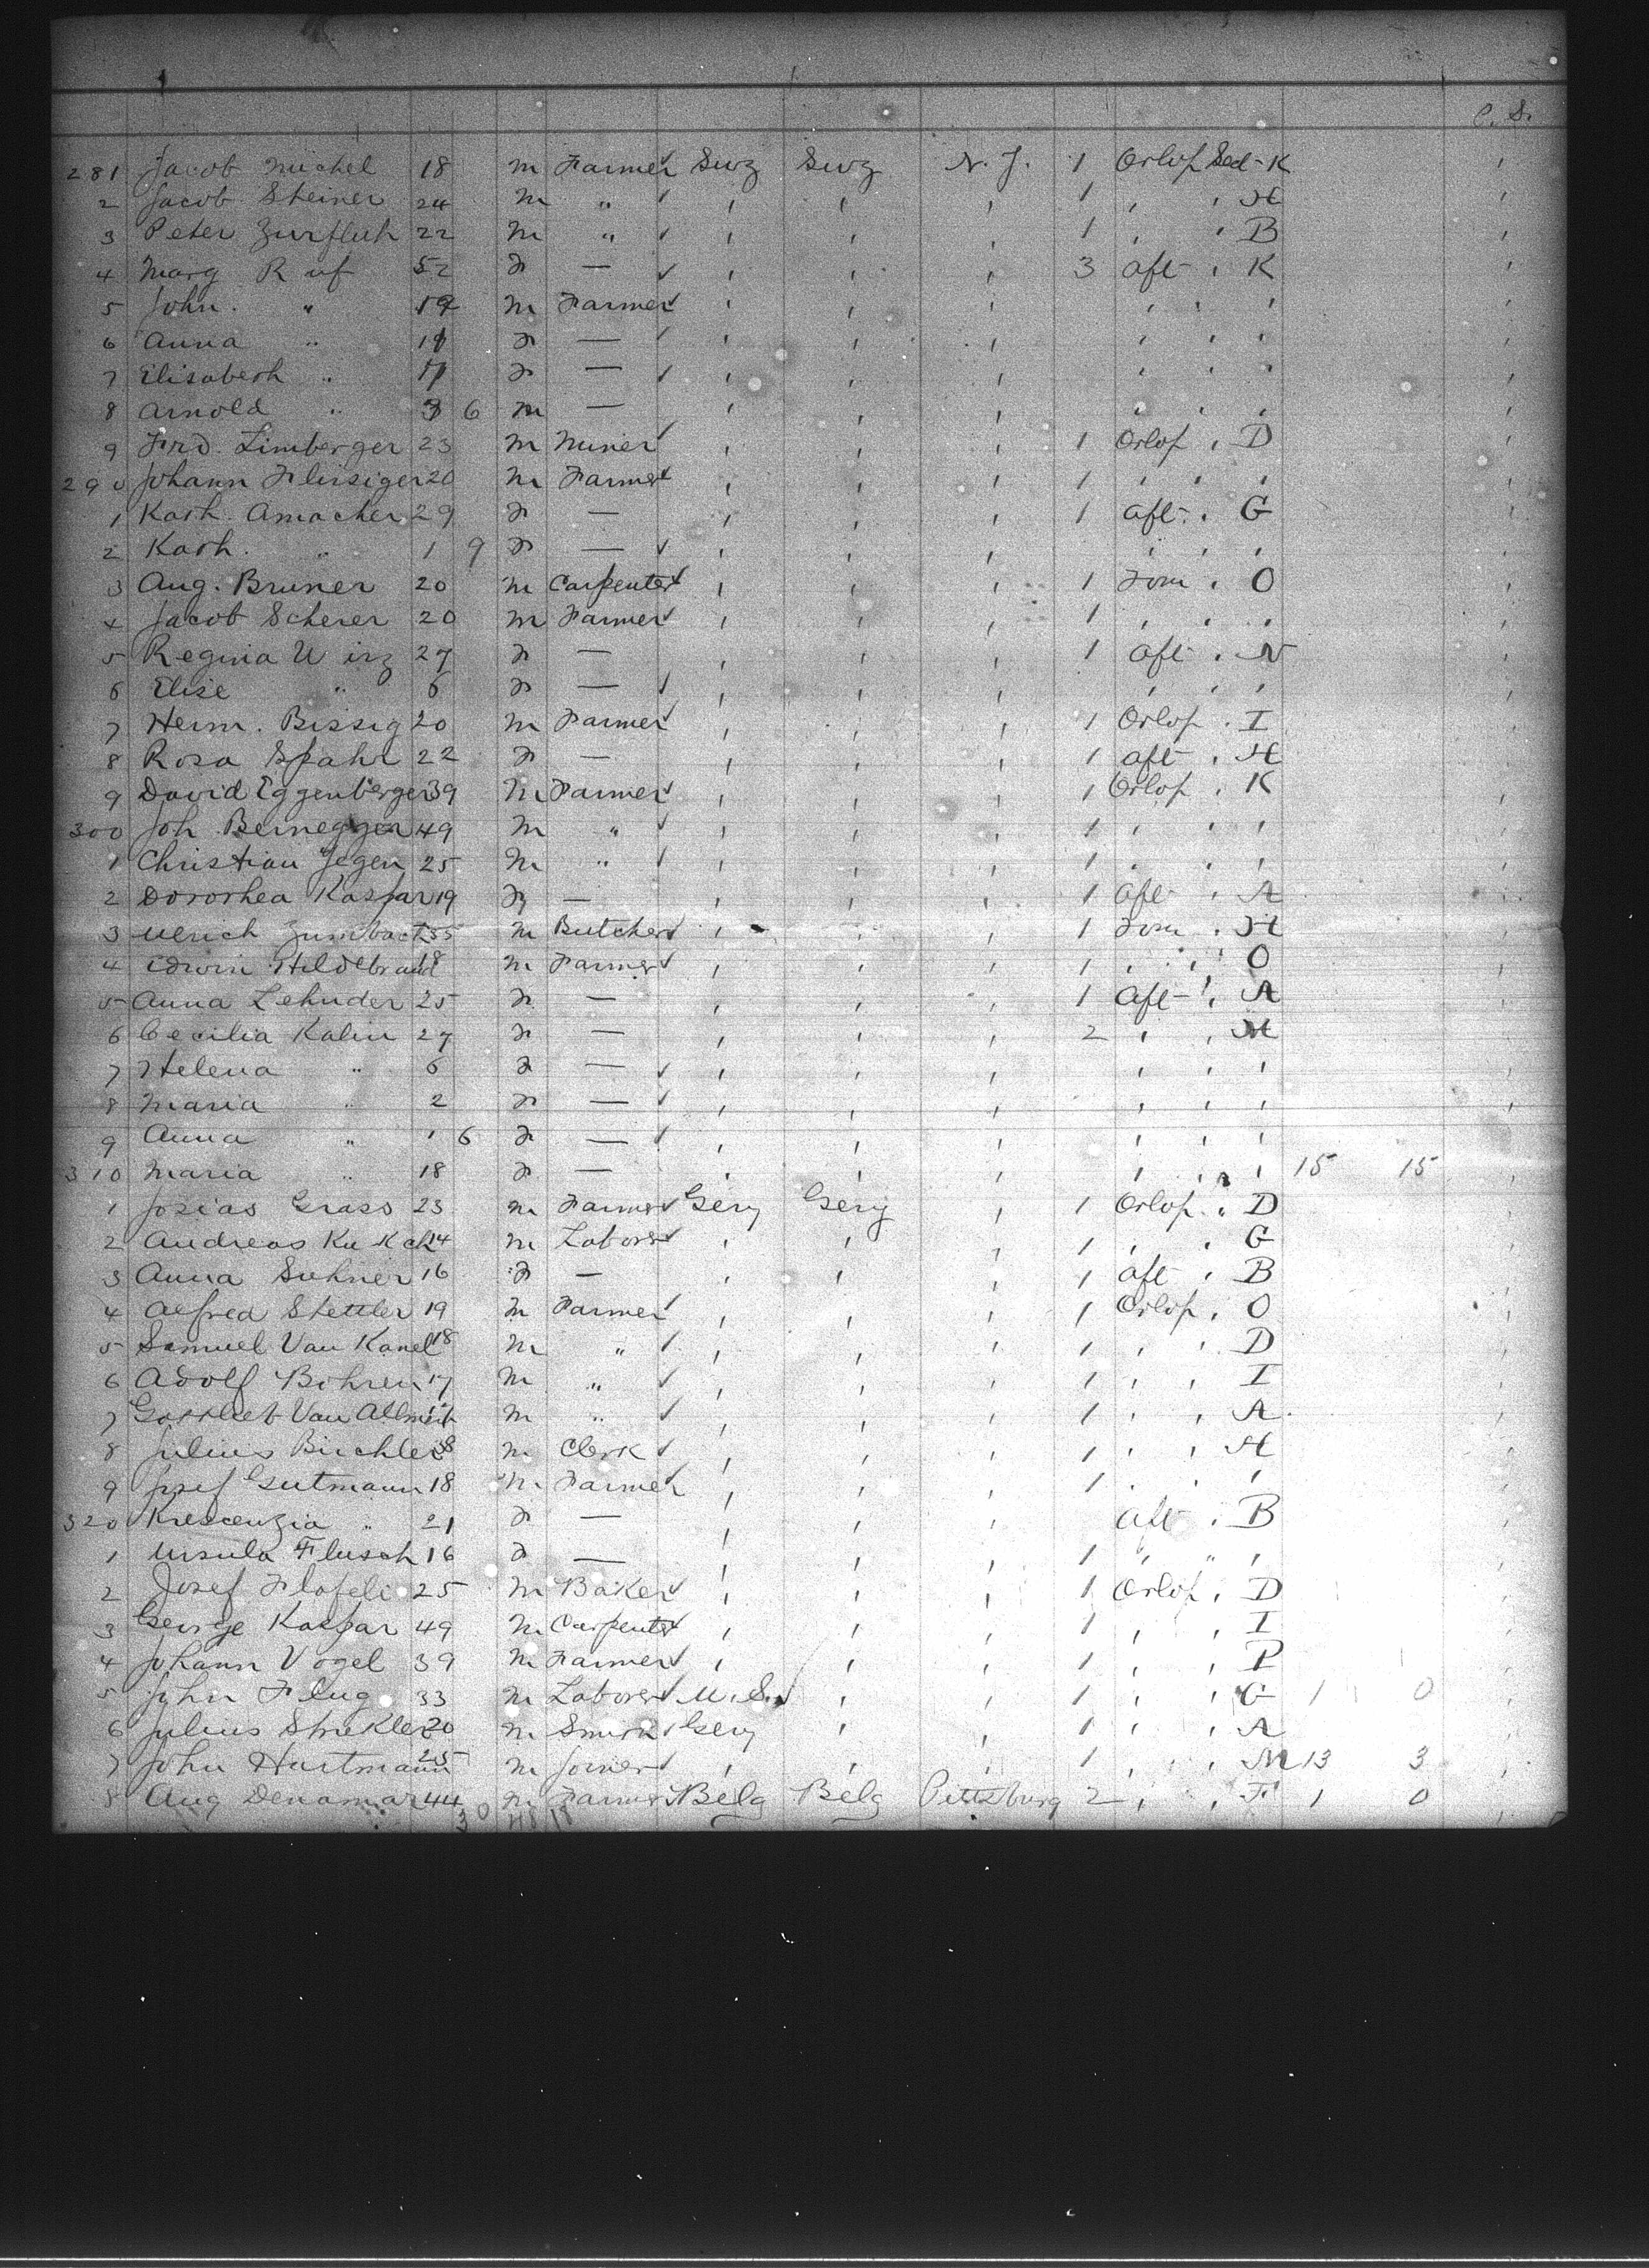 C. S.
281 Jacob Michel 18 m Farmer Swz Swz N. J. 1 Orlop Sec-K
2 Jacob Steiner 24 m " ' ' ' 1 ' ' H
3 Peter Zurfluh 22 m " ' ' ' 1 ' ' B
4 Marg Ruf 52 F — ' ' ' 3 aft ' K
5 John. " 19 m Farmer ' ' ' ' ' '
6 Anna " F — ' ' ' ' ' '
7 Elisabeth " F — ' ' ' ' ' '
8 Arnold " 6 m — ' ' ' ' ' '
9 Frd. Limberger 23 m Miner ' ' ' 1 Orlop ' D
290 Johann 20 m Farmer ' ' ' 1 ' ' '
1 Kath. Amacher 29 F — ' ' ' 1 aft. ' G
2 Kath. " 1 9 F — ' ' ' ' ' '
3 Aug. Bruner 20 m Carpenter ' ' ' 1 Fom ' O
4 Jacob Scherer 20 m Farmer ' ' ' 1 ' ' '
5 Regina Wirz 27 F — ' ' ' 1 aft ' N
6 Elise " 6 F — ' ' ' ' ' '
7 Herm. Bissig 20 m Farmer ' ' ' 1 Orlop ' I
8 Rosa Spahr 22 F — ' ' ' 1 aft ' H
9 David Eggenberger 39 m Farmer ' ' ' 1 Orlop ' K
300 Joh. Bernegger 49 m " ' ' ' 1 ' ' '
1 Christian Jegen 25 m " ' ' ' 1 ' ' '
2 Dorothea Kaspar 19 F — ' ' ' 1 aft ' A
3 Ulrich Zumbach 35 m Butcher ' ' ' 1 Fom ' H
4 Edwin Hildebrand 18 m Farmer ' ' ' 1 ' ' O
5 Anna Lehnder 25 F — ' ' ' 1 aft ' A
6 Cecilia Kalin 27 F — ' ' ' 2 ' ' H
7 Helena " 6 F — ' ' ' ' ' '
8 Maria " 2 F — ' ' ' ' ' '
9 Anna " 1 6 F — ' ' ' ' ' '
310 Maria " 18 F — ' ' ' ' ' ' 15 15
1 Josias Grass 23 m Farmer Gery Gery ' 1 Orlop " D
2 Andreas 14 m Laborer ' ' ' 1 ' ' G
3 Anna Suhner 16 F — ' ' ' 1 aft ' B
4 Alfred Stettler 19 m Farmer ' ' ' 1 Orlop ' O
5 Samuel Van Kanel 18 m " ' ' ' 1 ' ' D
6 Adolf Bohren 17 m " ' ' ' 1 ' ' I
7 Gottlieb Van m " ' ' ' 1 ' ' A
8 Julius m Clerk ' ' ' 1 ' ' H
9 Josef Gutmann 18 m Farmer ' ' ' 1 ' ' '
320 Kreszenzia " 21 F — ' ' ' aft ' B
1 Ursula Flusch 16 F — ' ' ' 1 ' " '
2 Josef 25 m Baker ' ' ' 1 Orlop ' D
3 George Kaspar 49 m Carpenter ' ' ' 1 ' ' I
4 Johann Vogel 39 m Farmer ' ' ' 1 ' ' P
5 John Flug 33 m Laborer U. S. ' ' 1 ' ' G 1 0
6 Julius 20 m Smith Gery ' ' 1 ' ' A
7 John Hartmann 25 m Joiner ' ' ' 1 ' ' M 13 3
8 Aug Denamar 44 m Farmer Belg Belg Pittsburg 2 ' ' F 1 0
30 48 18